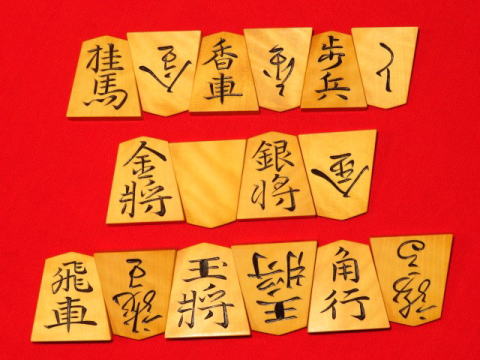 桂馬 香車 歩兵 と
金將 銀将
飛車 龍王 玉將 王將 角行 龍馬